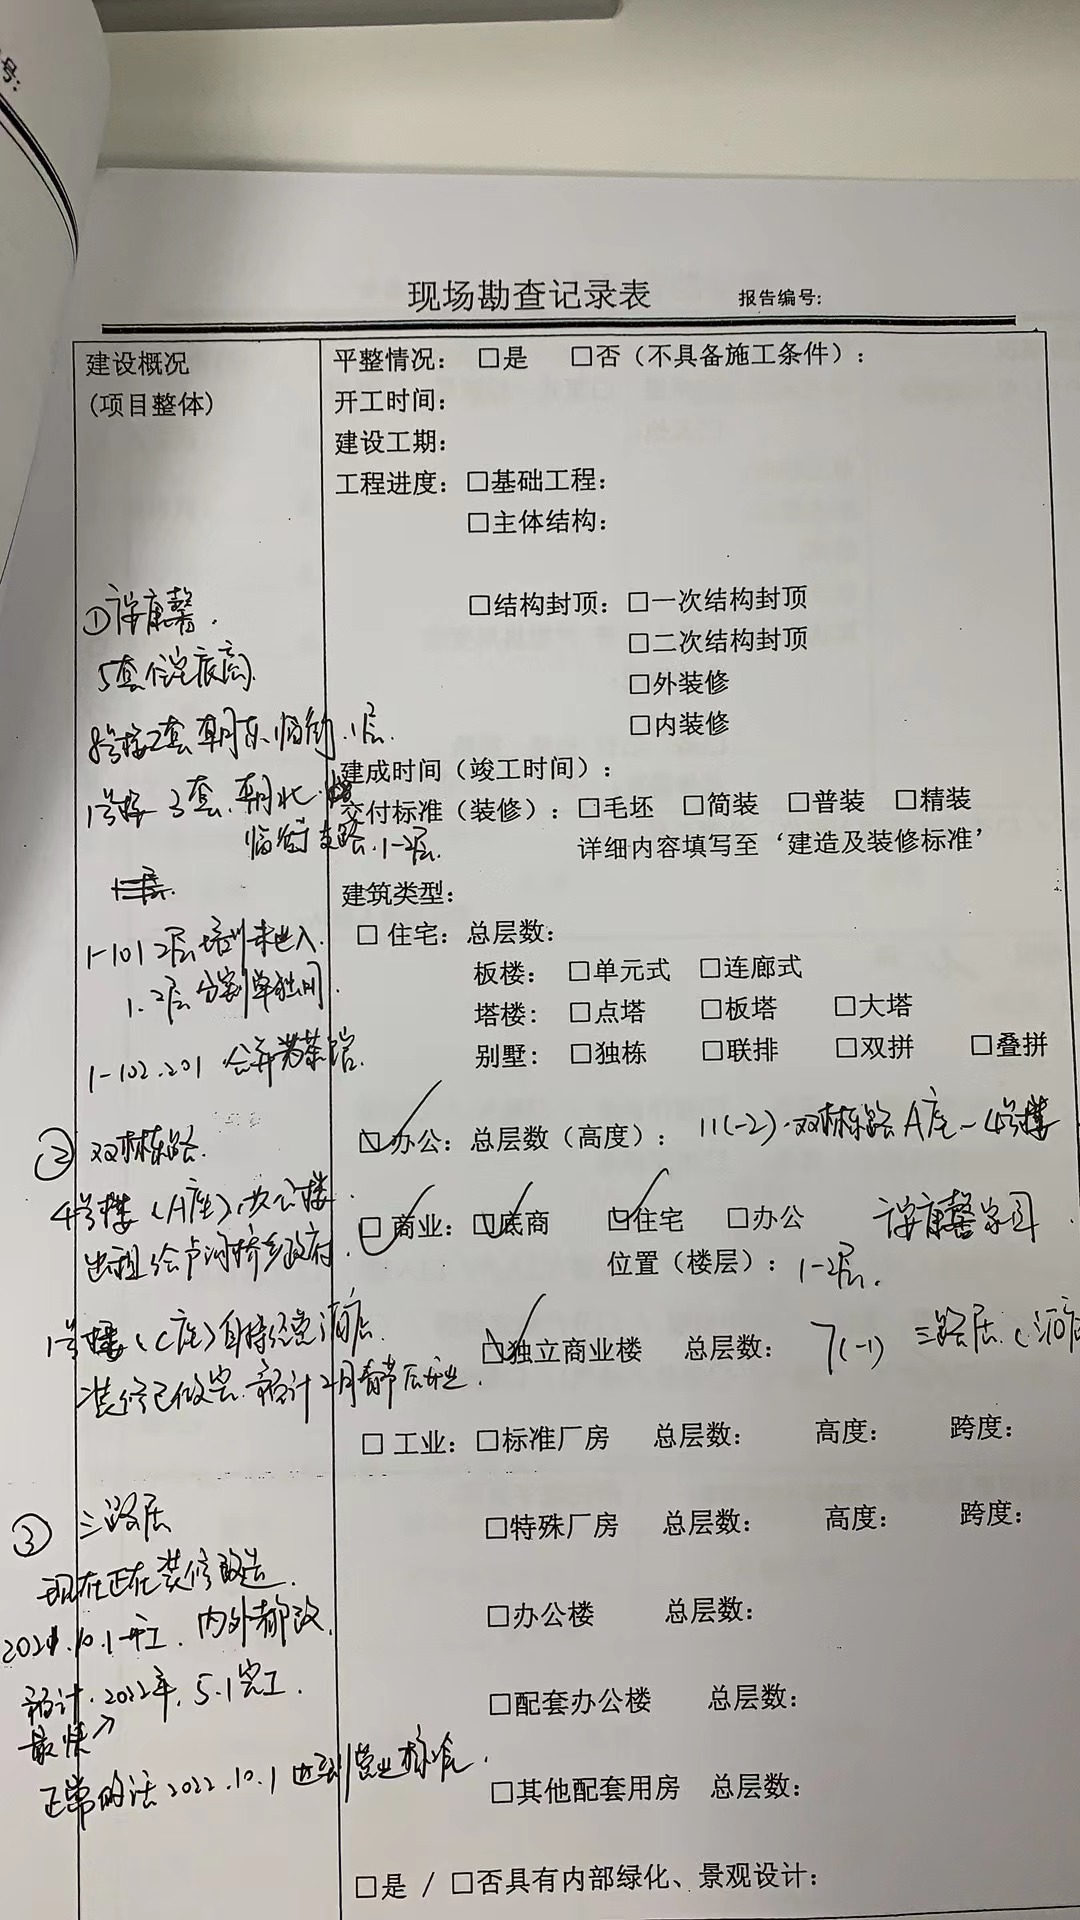 号:
现场勘查记录表 报告编号:
建设概况
(项目整体)
平整情况: □是 □否(不具备施工条件):
开工时间:
建设工期:
工程进度: □基础工程:
□主体结构:
□结构封顶: □一次结构封顶
□二次结构封顶
□外装修
□内装修
建成时间(竣工时间):
交付标准(装修): □毛坯 □简装 □普装 □精装
详细内容填写至‘建造及装修标准’
建筑类型:
□ 住宅: 总层数:
板楼: □单元式 □连廊式
塔楼: □点塔 □板塔 □大塔
别墅: □独栋 □联排 □双拼 □叠拼
☑办公: 总层数(高度): 11(-2)·双林东路A座-4号楼
☑ 商业: ☑底商 ☑住宅 □办公 康馨家园
位置(楼层): 1-2层.
☑独立商业楼 总层数: 7(-1) 三路居(酒店
□ 工业: □标准厂房 总层数: 高度: 跨度:
□特殊厂房 总层数: 高度: 跨度:
□办公楼 总层数:
□配套办公楼 总层数:
□其他配套用房 总层数:
□是 / □否具有内部绿化、景观设计:
①康馨.
5套住宅底商
8号楼2套 朝东 临街.1层.
1号楼 3套.朝北.
临街支路.1-2层.
1-101 2层培训未进入.
1.2层分割单独门.
1-102.201 合并为茶馆.
② 双林东路
4号楼(A座)办公楼.
出租给卢沟桥乡政府.
1号楼(C座)自持经营酒店.
装修已做完.预计2月春节后开业.
③ 三路居
现在正在装修改造.
2021.10.1开工.内外都改.
预计.2022年.5.1完工.
最快↗
正常的话2022.10.1达到营业标准.